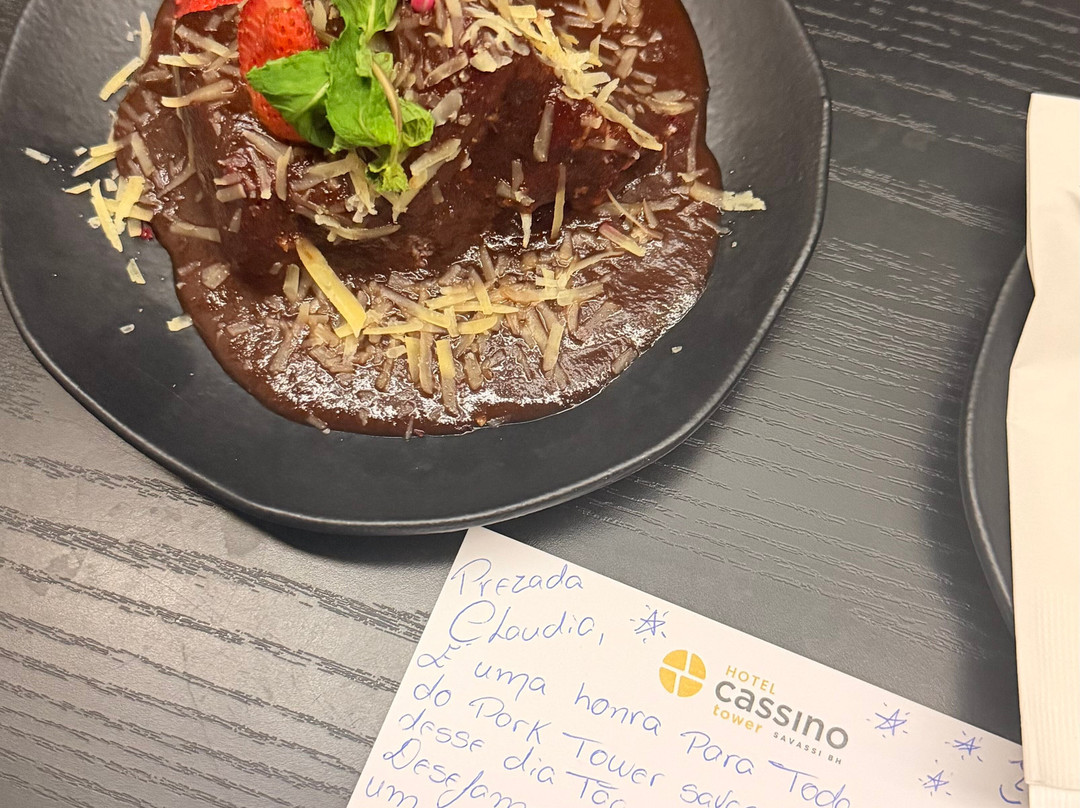 Prezada
Claudia,
É uma honra para Todo
do Park Tower savas
desse dia Tão
Desejam
um
HOTEL
cassino
tower
SAVASSI BH